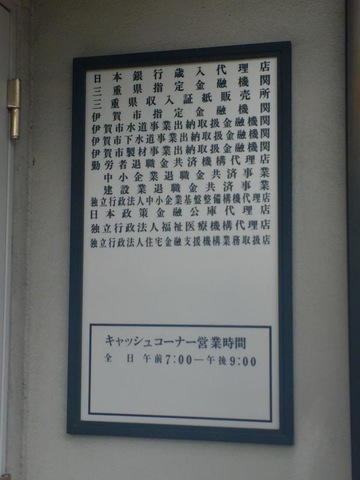 日本銀行歳入代理店
三重県指定金融機関
三重県収入証紙販売所
伊賀市指定金融機関
伊賀市水道事業出納取扱金融機関
伊賀市下水道事業出納取扱金融機関
伊賀市製材事業出納取扱金融機関
勤労者退職金共済機構代理店
中小企業退職金共済事業
建設業退職金共済事業
独立行政法人中小企業基盤整備機構代理店
日本政策金融公庫代理店
独立行政法人福祉医療機構代理店
独立行政法人住宅金融支援機構業務取扱店
キャッシュコーナー営業時間
全日 午前7:00―午後9:00